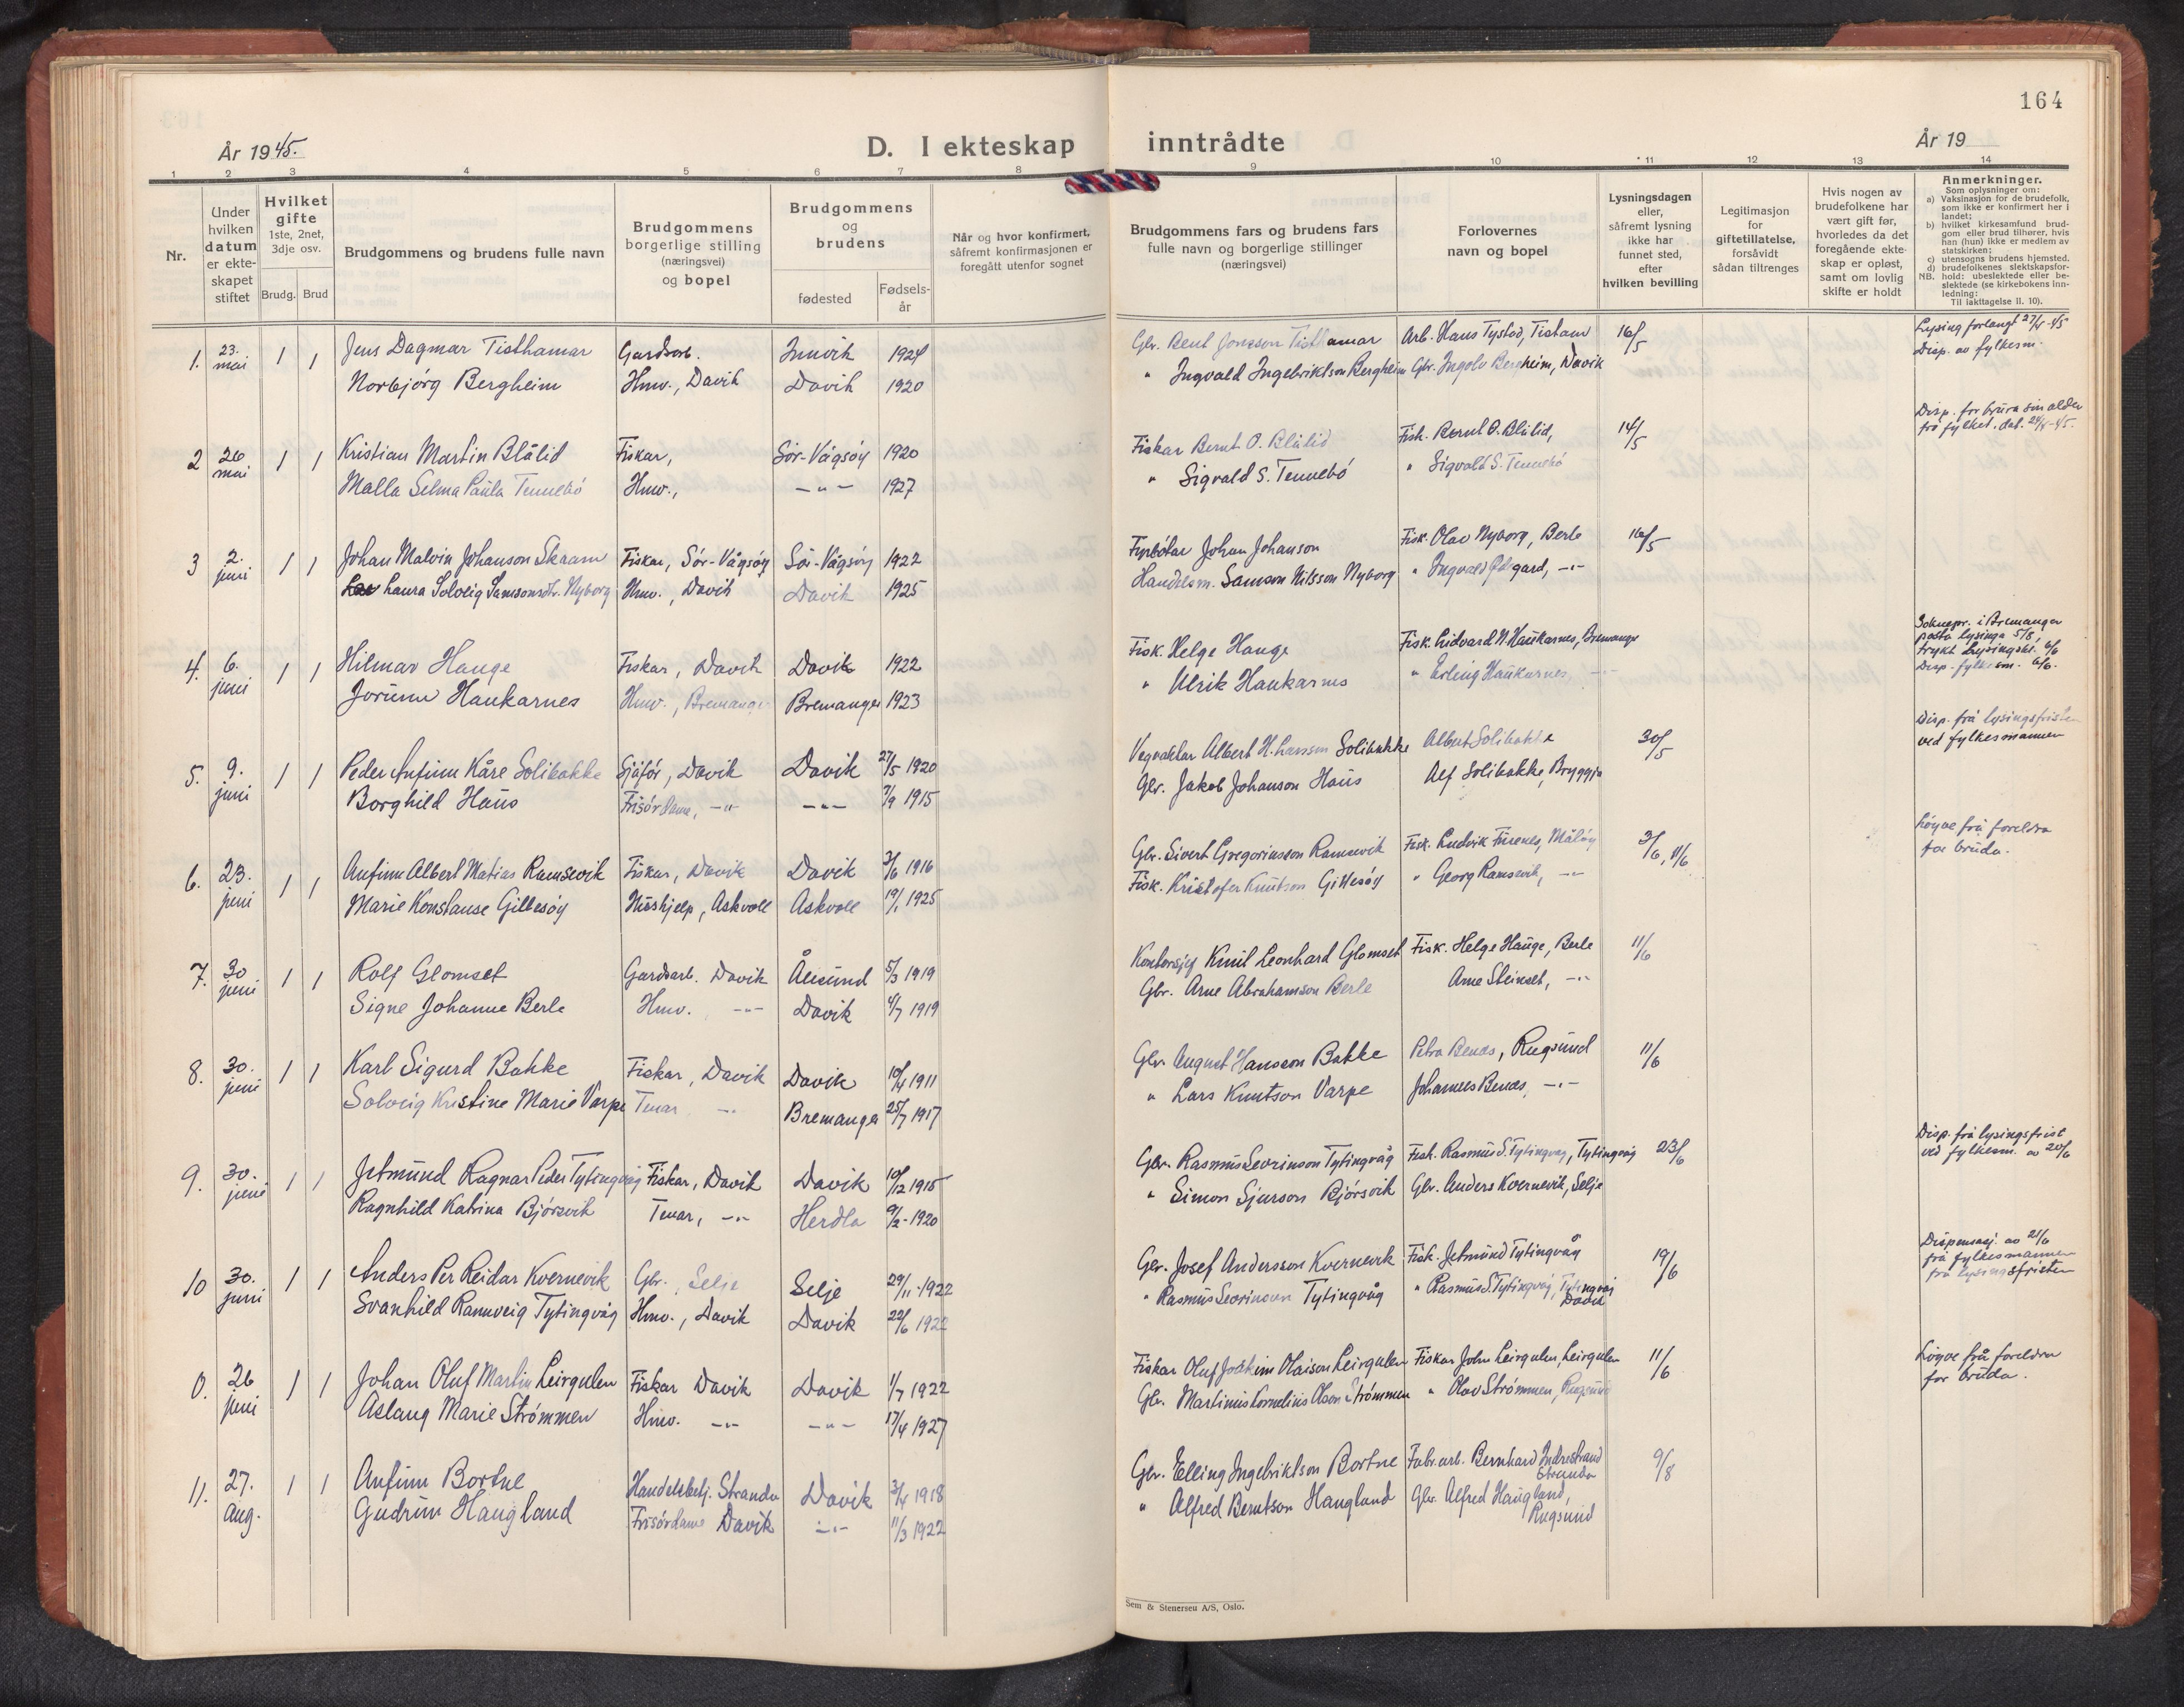 164
År 1945.
D. I ekteskap inntrådte
År 19
1 2 3 4 5 6 7 8 9 10 11 12 13 14
Nr.
Under hvilken datum er ekteskapet stiftet
Hvilket gifte 1ste, 2net, 3dje osv.
Brudg. Brud
Brudgommens og brudens fulle navn
Brudgommens borgerlige stilling (næringsvei) og bopel
Brudgommens og brudens
fødested
Fødselsår
Når og hvor konfirmert, såfremt konfirmasjonen er foregått utenfor sognet
Brudgommens fars og brudens fars fulle navn og borgerlige stillinger (næringsvei)
Forlovernes navn og bopel
Lysningsdagen eller, såfremt lysning ikke har funnet sted, efter hvilken bevilling
Legitimasjon for giftetillatelse, forsåvidt sådan tiltrenges
Hvis nogen av brudefolkene har vært gift før, hvorledes da det foregående ekteskap er opløst, samt om lovlig skifte er holdt
Anmerkninger.
Som oplysninger om:
a) Vaksinasjon for de brudefolk, som ikke er konfirmert her i landet;
b) hvilket kirkesamfund brudgom eller brud tilhører, hvis han (hun) ikke er medlem av statskirken;
c) utensogns brudens hjemsted.
d) brudefolkenes slektskapsforhold: ubeslektede eller beslektede (se kirkebokens innledning:
NB. Til iakttagelse II. 10).
1. 23. mai 1 1 Jens Dagmar Tisthamar Gardsarb. Innvik 1924 Gbr. Bent Jonsson Tisthamar Arb. Hans Tystad, Tistam 16/5 Lysing forlangt 27/4-45 Disp. av fylkesm.
Norbjörg Bergheim Hmv., Davik Davik 1920 " Ingvald Ingebriktson Bergheim Gbr. Ingolv Bergheim, Davik
2 26 mai 1 1 Kristian Martin Blålid Fiskar, Sör-Vågsöy 1920 Fiskar Bernt O. Blålid Fisk. Bernt O. Blålid, 14/5 Disp. for brura sin alder frå fylket, dat. 24/4-45.
Malla Selma Paula Tennebö Hmv., -"- 1927 " Sigvald S. Tennebö " Sigvald S. Tennebö
3 2. juni 1 1 Johan Malvin Johanson Skaarn Fiskar, Sör-Vågsöy Sör-Vågsöy 1922 Fyrbötar Johan Johanson Fisk. Olav Nyborg, Berle 16/5
Laura Solveig Samsonsdtr. Nyborg Hmv., Davik Davik 1925 Handelsm. Samson Nilsson Nyborg " Ingvald gard, -"-
4. 6. juni 1 1 Hilmar Hauge Fiskar, Davik Davik 1922 Fisk. Helge Hauge Fisk. Lidvard N. Haukarnes, Bremanger Soknepr. i Bremanger lysinga 5/6, trykt Lysingsbl. 6/6 Disp. fylkesm. 6/6.
Jorunn Haukarnes Hmv., Bremanger Bremanger 1923 " Ulrik Haukarnes " Erling Haukarnes, -"-
5. 9. juni 1 1 Peder Anfinn Kåre Solibakke Sjåför, Davik Davik 27/5 1920 Vegvaktar Albert H. Larssen Solibakke Albert Solibakke 30/5 Disp. frå lysingsfristen ved fylkesmannen
Borghild Haus Frisördame, -"- -"- 7/9 1915 Gbr. Jakob Johanson Haus Alf Solibakke, Bryggja
6. 23. juni 1 1 Anfinn Albert Matias Ramsevik Fiskar, Davik Davik 3/6 1916 Gbr. Sivert Gregoriusson Ramsevik Fisk. Ludvik Furenes, Målöy 3/6, 11/6 Löyve frå foreldra for bruda.
Marie Konstanse Gillesöy Hushjelp, Askvoll Askvoll 19/1 1925 Fisk. Kristofer Knutson Gillesöy " Georg Ramsevik, -"-
7. 30 juni 1 1 Rolf Glomset Gardsarb. Davik Ålesund 5/3 1919 Kontorsjef Knut Leonhard Glomset Fisk. Helge Hauge, Berle 11/6
Signe Johanne Berle Hmv. -"- Davik 4/7 1919 Gbr. Arne Abrahamson Berle Arne Steinset, -"-
8. 30. juni 1 1 Karl Sigurd Bakke Fiskar, Davik Davik 10/4 1911 Gbr. August Hansson Bakke Petra Benås, Rugsund 11/6
Solveig Kristine Marie Varpe Tenar -"- Bremanger 25/7 1917 " Lars Knutson Varpe Johannes Benås, -"-
9. 30. juni 1 1 Jetmund Ragnar Peder Tytingvåg Fiskar, Davik Davik 10/12 1915 Gbr. Rasmus Severinson Tytingvåg Fisk. Rasmus S. Tytingvåg, Tytingvåg 23/6 Disp. frå lysingsfrist ved fylkesm. av 20/6
Ragnhild Katrina Björsvik Tenar, -"- Herdla 9/2-1920 " Simon Sjurson Björsvik Gbr. Anders Kvernevik, Selje
10 30. juni 1 1 Anders Per Reidar Kvernevik Gbr., Selje Selje 29/11-1922 Gbr. Josef Andersson Kvernevik Fisk. Jetmund Tytingvåg 19/6 Dispensasj. av 21/6 frå fylkesmannen frå lysingsfristen
Svanhild Rannveig Tytingvåg Hmv., Davik Davik 22/6 1922 " Rasmus Severinson Tytingvåg " Rasmus S. Tytingvåg, Tytingvåg Davik
0. 26 juni 1 1 Johan Oluf Martin Leirgulen Fiskar Davik Davik 1/7 1922 Fiskar Oluf Joakim Olaison Leirgulen Fiskar John Leirgulen, Leirgulen 11/6 Löyve frå foreldra for bruda.
Aslaug Marie Strömmen Hmv. -"- -"- 17/4 1927 Gbr. Martinus Kornelius Olson Strömmen " Olav Strömmen, Rugsund
11. 27. aug. 1 1 Anfinn Bortne Handelsbetj. Stranda Davik 3/4 1918 Gbr. Elling Ingebriktson Bortne Fabr.arb. Bernhard Indrestrand Stranda 9/8
Gudrun Haugland Frisördame Davik -"- 11/3 1922 " Alfred Berntson Haugland Gbr. Alfred Haugland, Rugsund
Sem & Stenersen A/S, Oslo.